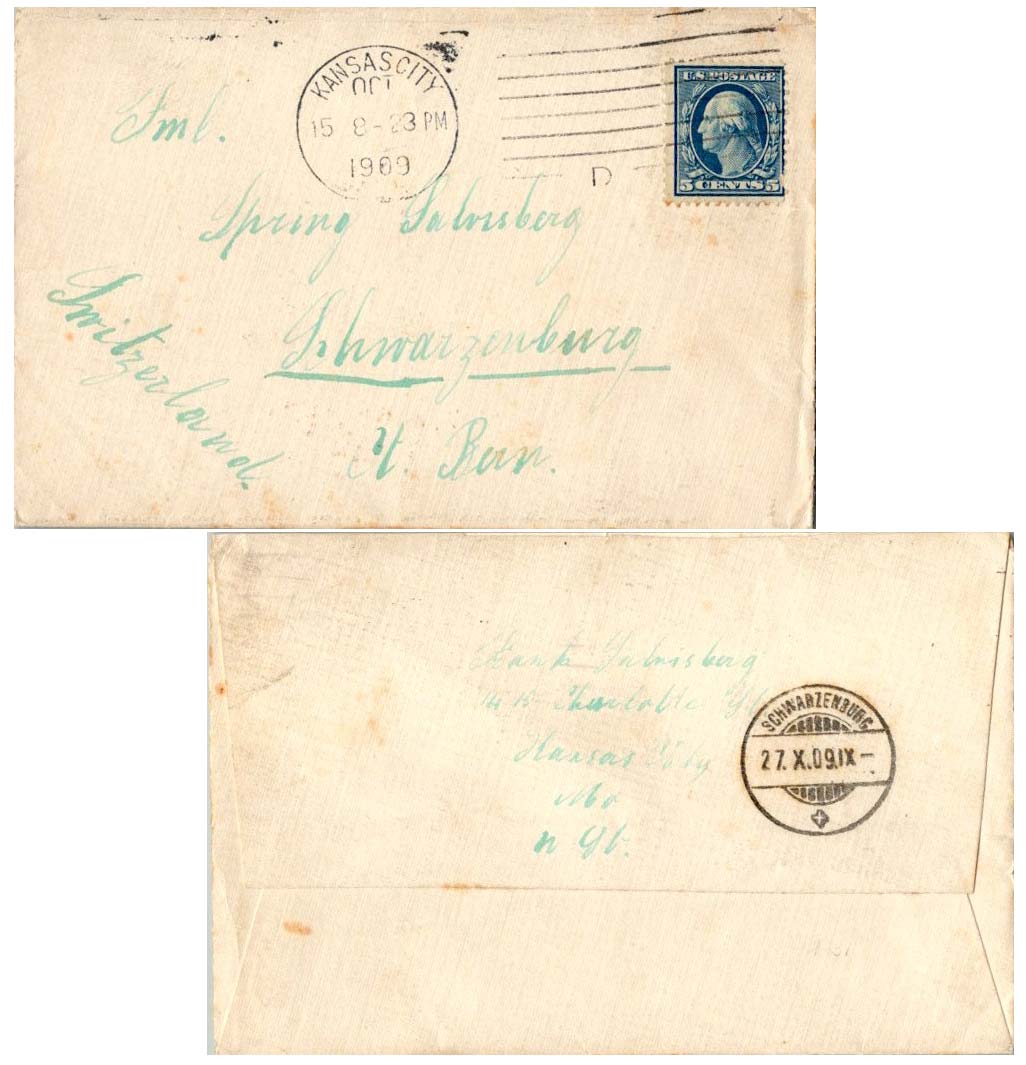 KANSAS CITY
OCT
15 8-23 PM
1909
D
U.S. POSTAGE
5 CENTS 5
Fml.
Spring Salvisberg
Schwarzenburg
Kt. Bern.
Switzerland.
Frank Salvisberg
1415 Charlotte
Kansas City
Mo
SCHWARZENBURG
27.X.09.IX-